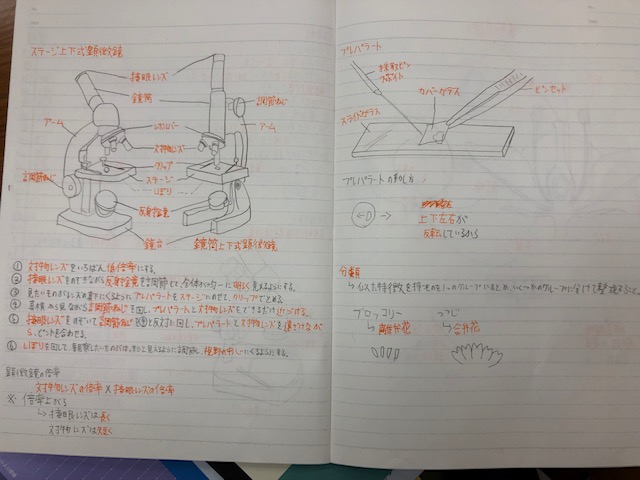 ステージ上下式顕微鏡
接眼レンズ
鏡筒
調節ねじ
アーム
アーム
レボルバー
対物レンズ
クリップ
調節ねじ
ステージ
しぼり
反射鏡
鏡台
鏡筒上下式顕微鏡
① 対物レンズをいちばん低倍率にする。
② 接眼レンズをのぞきながら反射鏡を調節して、全体が均一に明るく見えるようにする。
③ 見たいものがレンズの真下にくるようにプレパラートをステージにのせ、クリップでとめる。
④ 真横から見ながら調節ねじを回し、プレパラートと対物レンズをできるだけ近づける。
⑤ 接眼レンズをのぞいて調節ねじを④と反対に回し、プレパラートと対物レンズを遠ざけながら、ピントを合わせる。
⑥ しぼりを回して、観察したいものがはっきりと見えるように調節し、視野の中心にくるようにする。
顕微鏡の倍率
対物レンズの倍率×接眼レンズの倍率
※ 倍率上がる
↳接眼レンズは長く
対物レンズは短く
プレパラート
スポイト
カバーガラス
ピンセット
スライドガラス
プレパラートの動し方
上下左右が
反転しているから
分類
↳似た特徴を持つものを1つのグループにまとめ、いくつかのグループに分けて整理すること。
ブロッコリー
つつじ
↳離弁花
↳合弁花